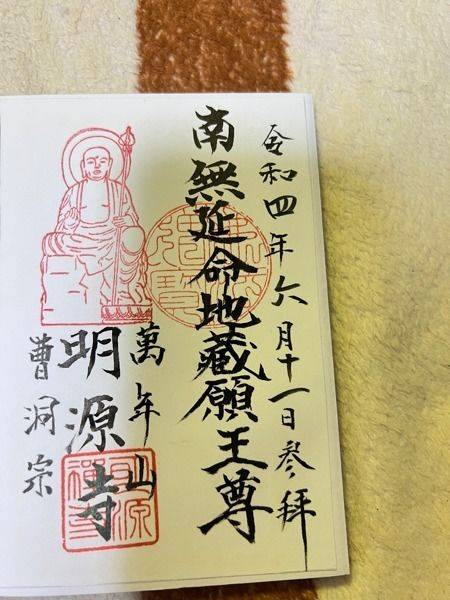 令和四年六月十一日参拜
南無延命地藏願王尊
萬年山
明源寺
曹洞宗